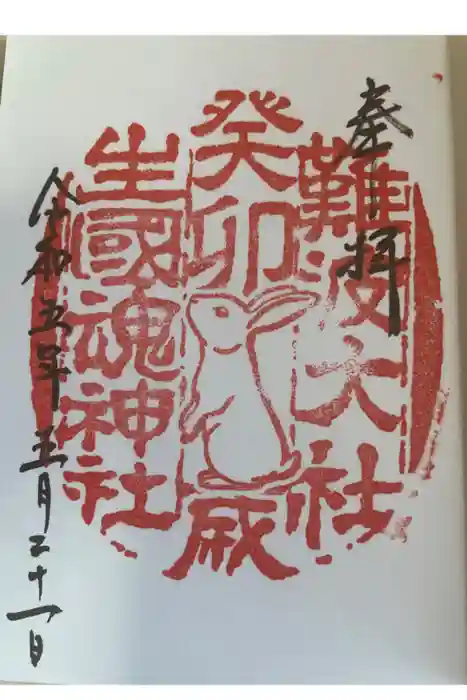 奉拝
難波大社
癸卯歳
生國魂神社
令和五年五月二十一日